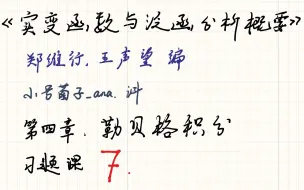 《实变函数与泛函分析概要》
郑维行、王声望 编
小号菊子_ana. 讲
第四章. 勒贝格积分
习题课 7.